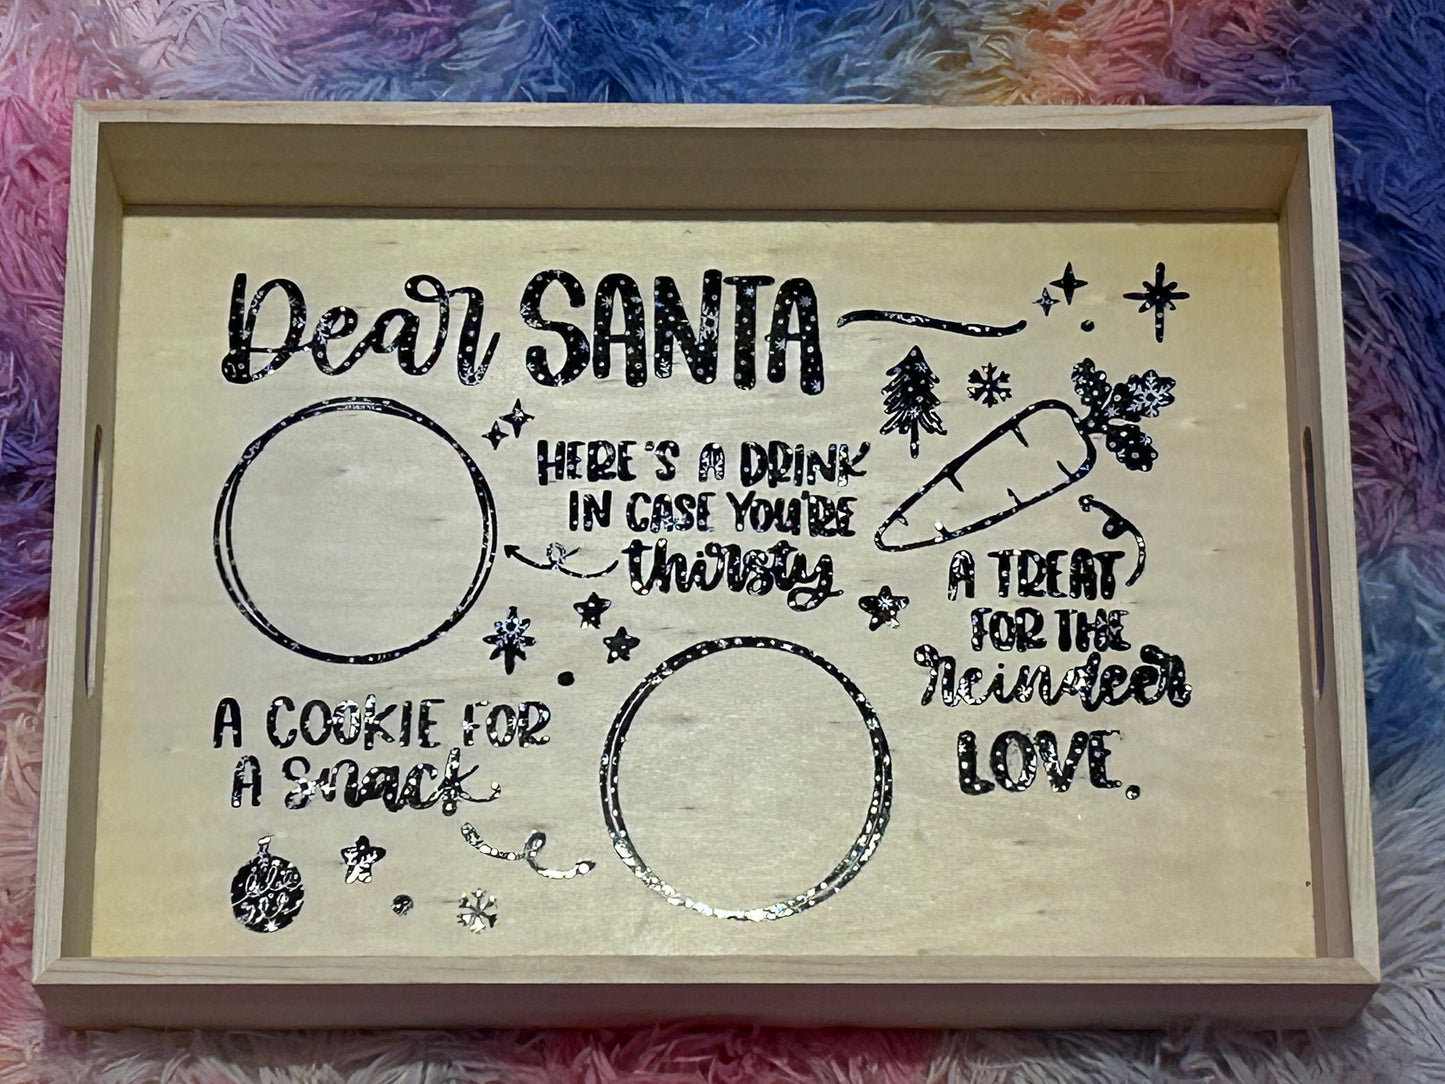 Dear SANTA
HERE'S A DRINK
IN CASE YOU'RE
thirsty
A TREAT
FOR THE
reindeer
LOVE.
A COOKIE FOR
A snack